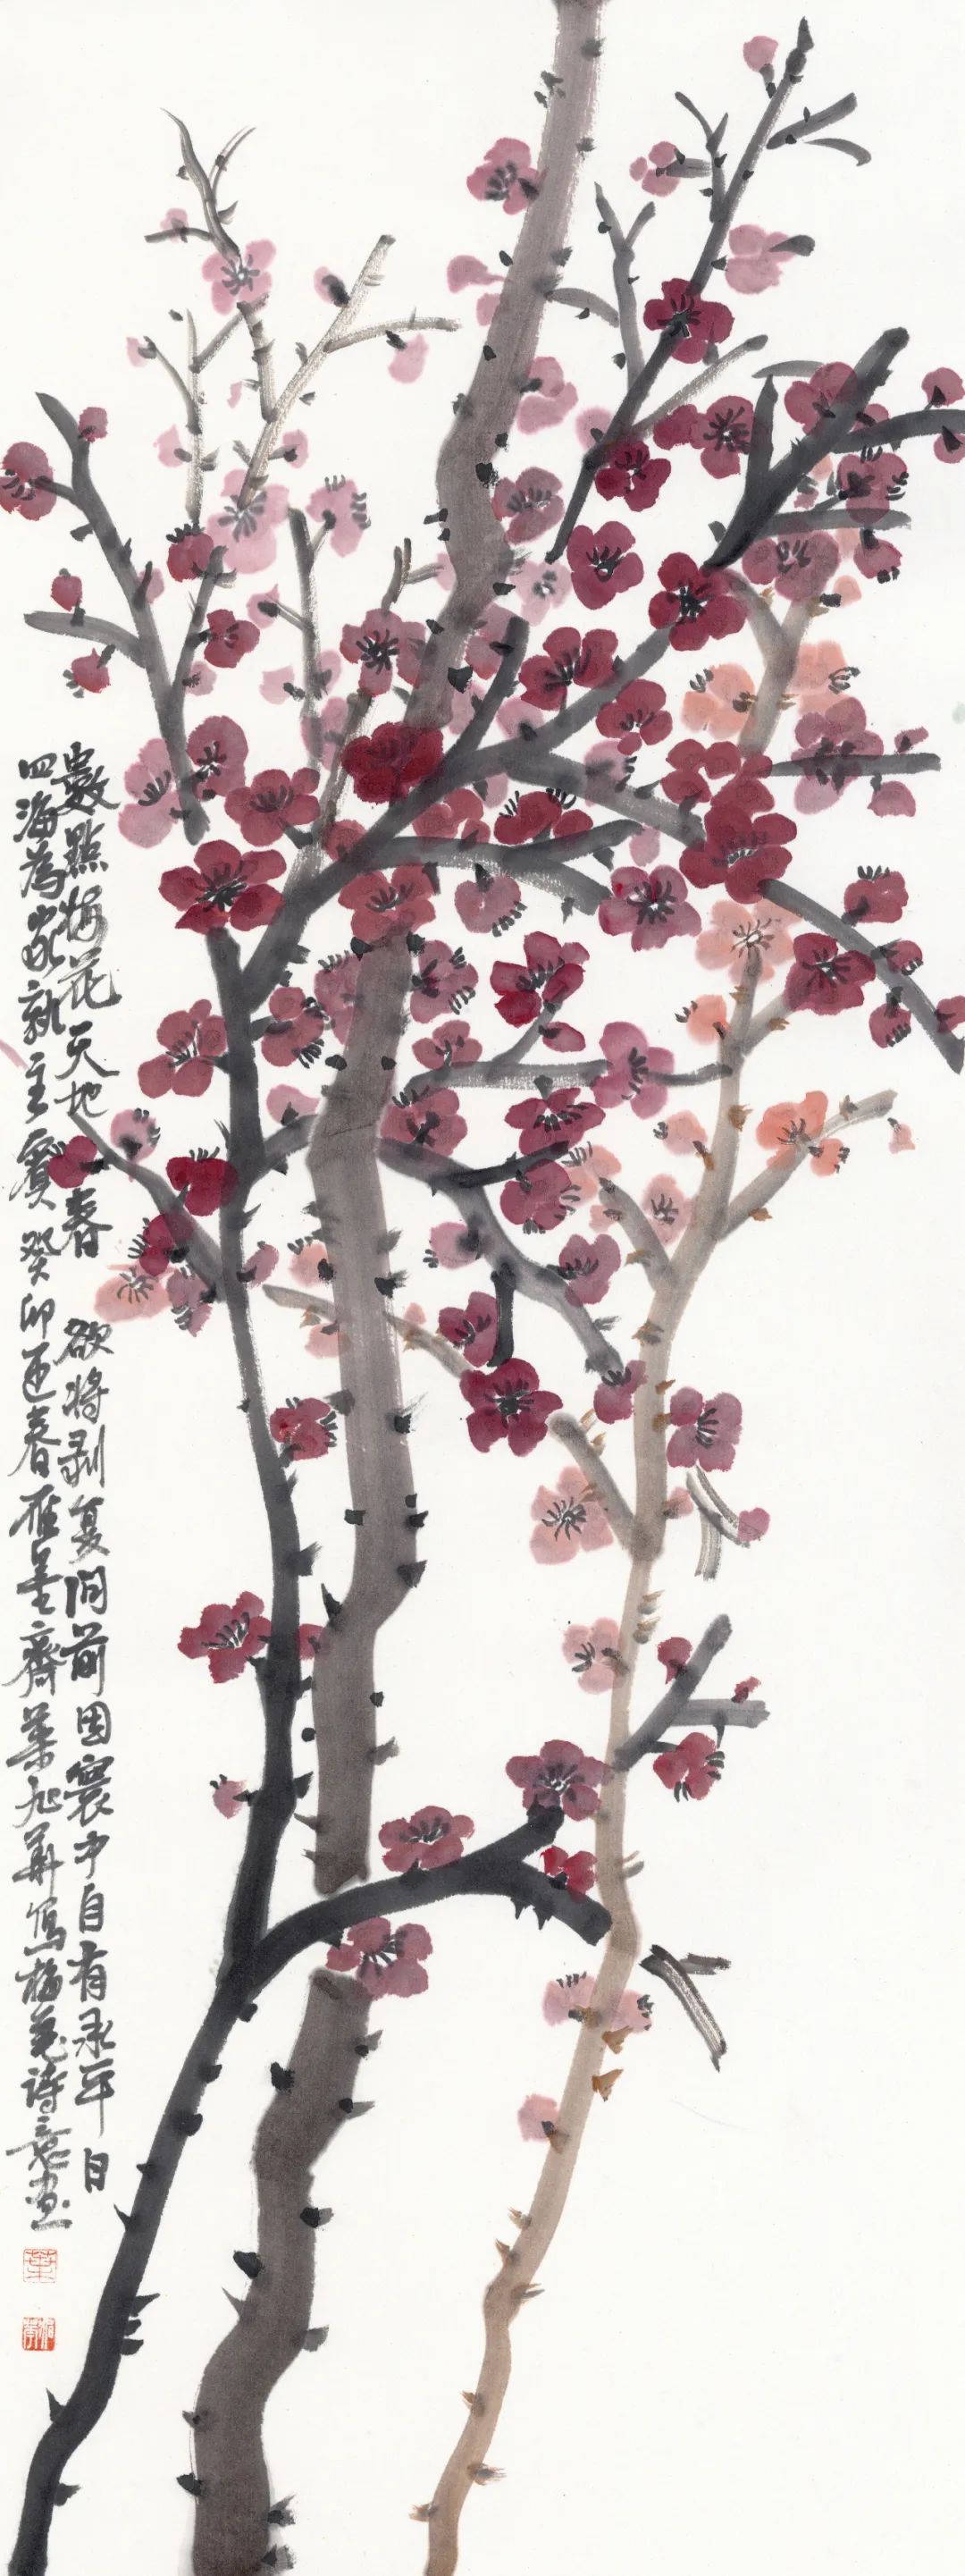 數點梅花天地春 欲將剝復問前因寰中自有承平日
四海為家孰主賓 癸卯迎春雁呈齋葉旭華寫梅花詩意畫
葉